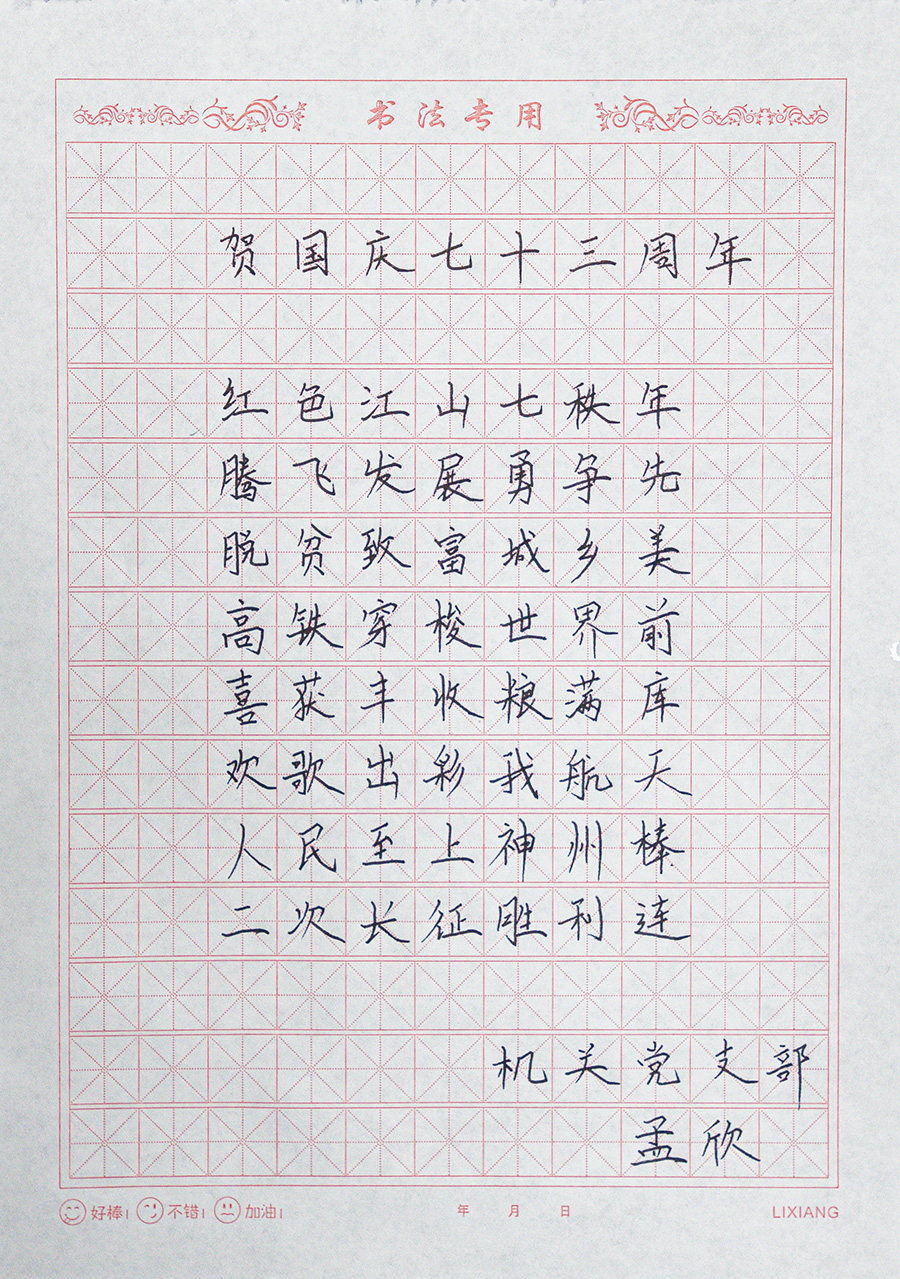 书法专用
贺国庆七十三周年
红色江山七秩年
腾飞发展勇争先
脱贫致富城乡美
高铁穿梭世界前
喜获丰收粮满库
欢歌出彩我航天
人民至上神州棒
二次长征胜利连
机关党支部
孟欣
好棒! 不错! 加油! 年 月 日 LIXIANG